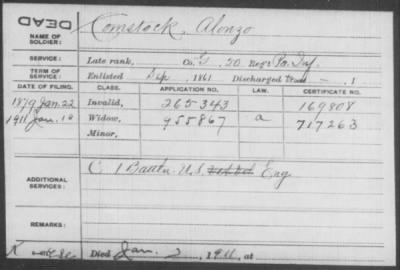 DEAD
NAME OF SOLDIER: Comstock, Alonzo
SERVICE: Late rank, Co. G, 50 Reg't Pa. Inf.
TERM OF SERVICE: Enlisted Sep, 1861 Discharged — , 1
DATE OF FILING. CLASS. APPLICATION NO. LAW. CERTIFICATE NO.
1879 Jan. 22 Invalid, 265343 169808
1911 Jan. 18 Widow, 955867 a 717263
Minor,
ADDITIONAL SERVICES: C 1 Batt'n U.S. Eng
REMARKS:
Died Jan. 2, 1911, at